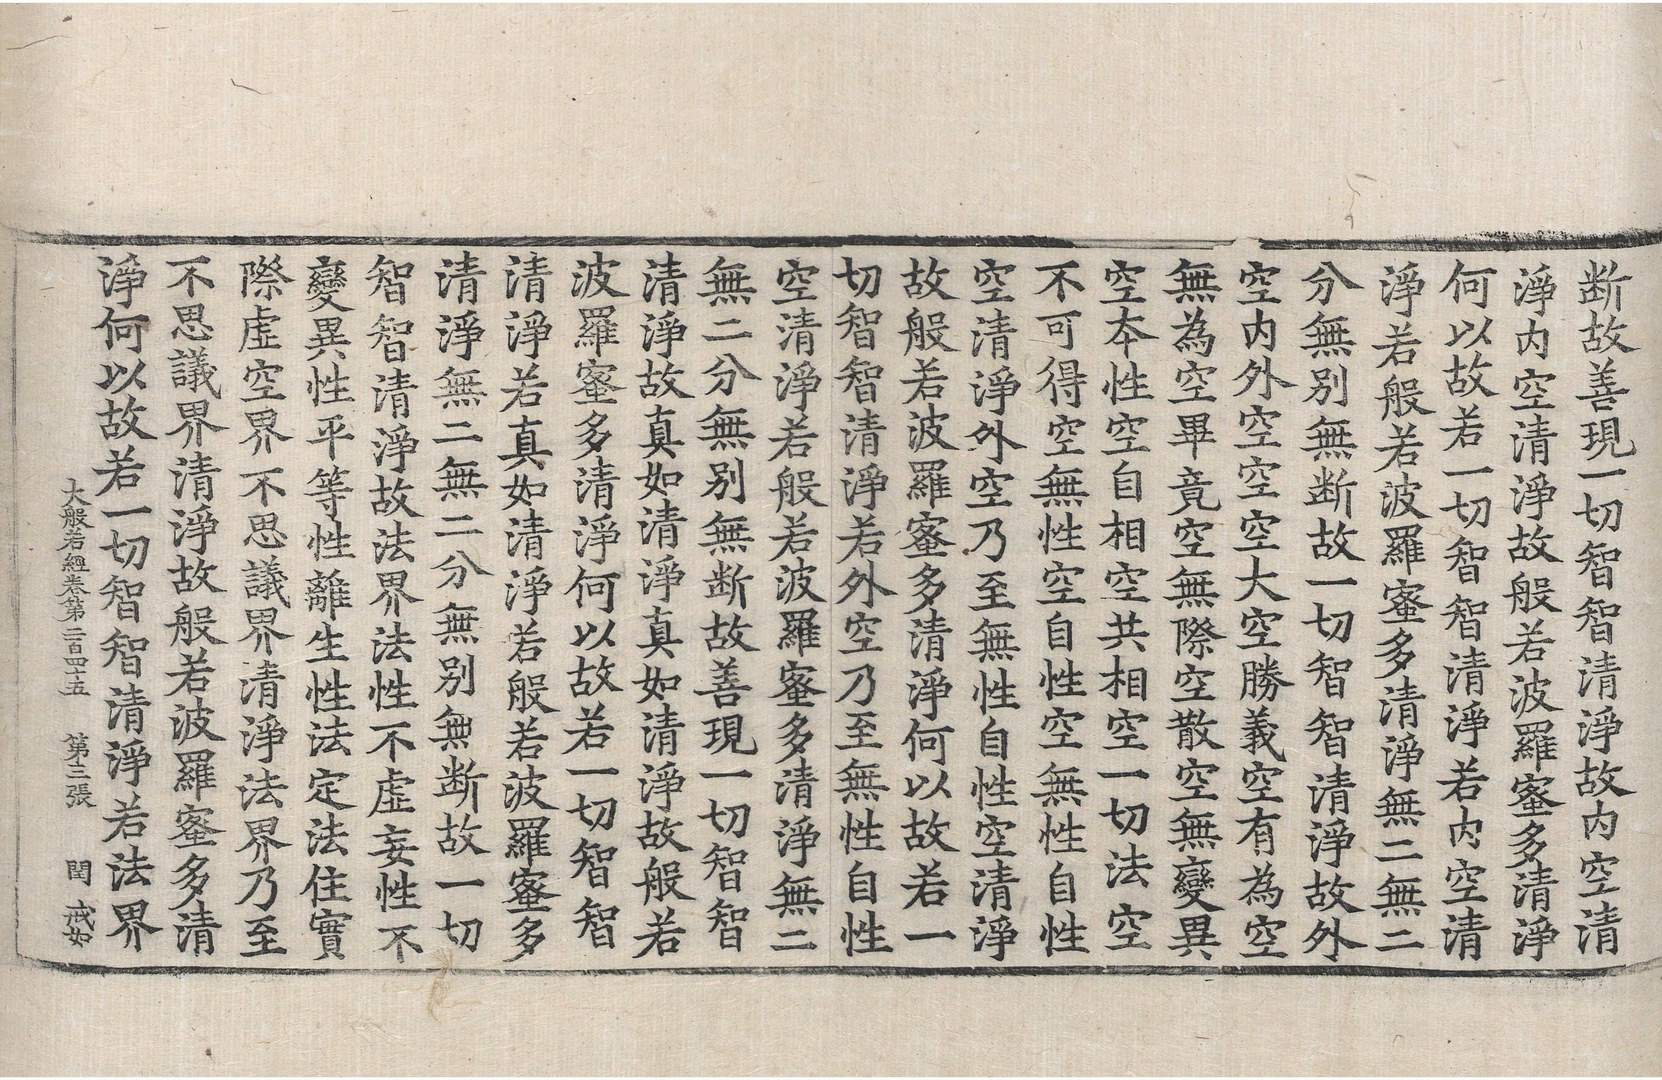 断故善現一切智智清淨故内空清
淨内空清淨故般若波羅蜜多清淨
何以故若一切智智清淨若内空清
淨若般若波羅蜜多清淨無二無二
分無別無断故一切智智清淨故外
空内外空空空大空勝義空有為空
無為空畢竟空無際空散空無變異
空本性空自相空共相空一切法空
不可得空無性空自性空無性自性
空清淨外空乃至無性自性空清淨
故般若波羅蜜多清淨何以故若一
切智智清淨若外空乃至無性自性
空清淨若般若波羅蜜多清淨無二
無二分無別無断故善現一切智智
清淨故真如清淨真如清淨故般若
波羅蜜多清淨何以故若一切智智
清淨若真如清淨若般若波羅蜜多
清淨無二無二分無別無断故一切
智智清淨故法界法性不虛妄性不
變異性平等性離生性法定法住實
際虛空界不思議界清淨法界乃至
不思議界清淨故般若波羅蜜多清
淨何以故若一切智智清淨若法界
大般若經卷第二百四十五 第三張 閏 戒如